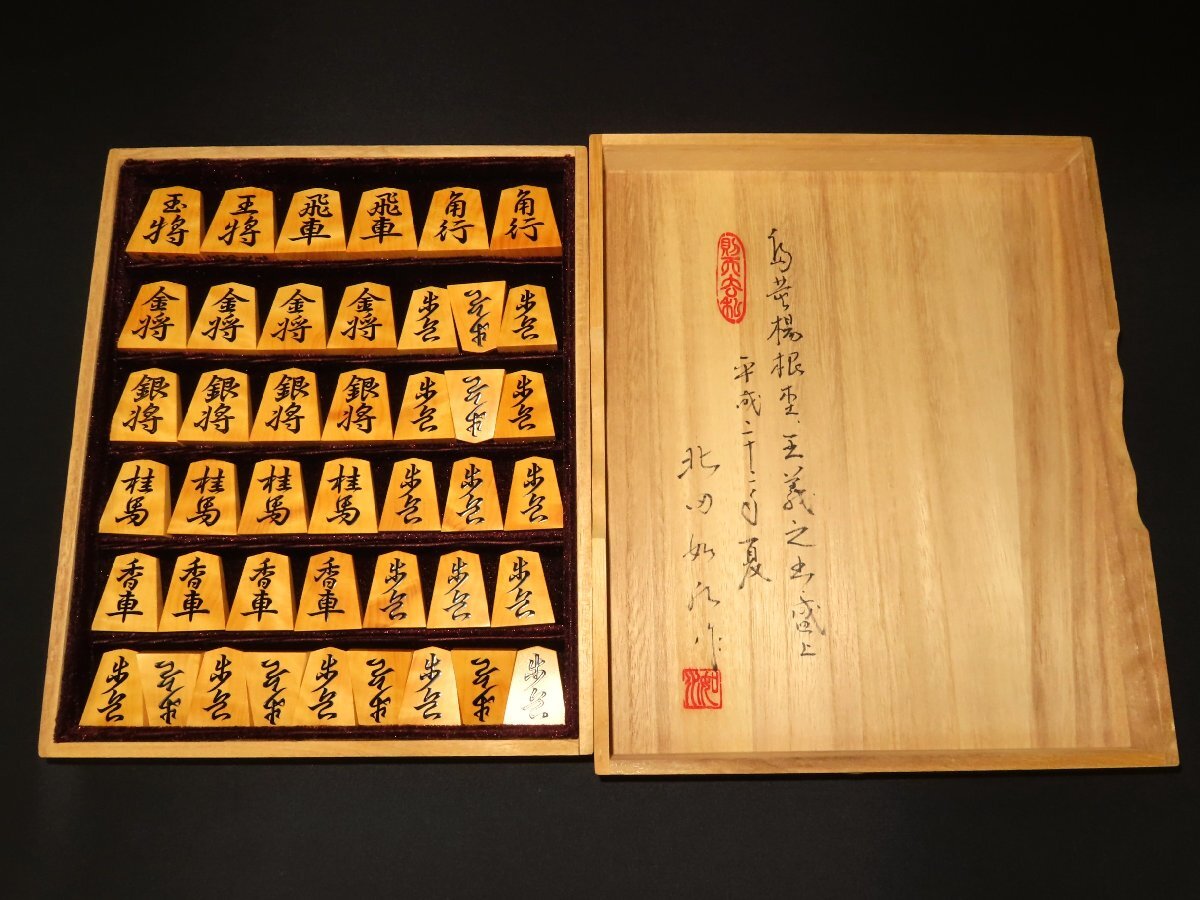 玉将 王将 飛車 飛車 角行 角行
金将 金将 金将 金将 歩兵 歩兵 歩兵
銀将 銀将 銀将 銀将 歩兵 歩兵 歩兵
桂馬 桂馬 桂馬 桂馬 歩兵 歩兵 歩兵
香車 香車 香車 香車 歩兵 歩兵 歩兵
歩兵 歩兵 歩兵 歩兵 歩兵 歩兵 歩兵 歩兵 歩兵
島黄楊根杢、王義之書、盛上
則天去私
平成二十二年夏
北田如水作
如水